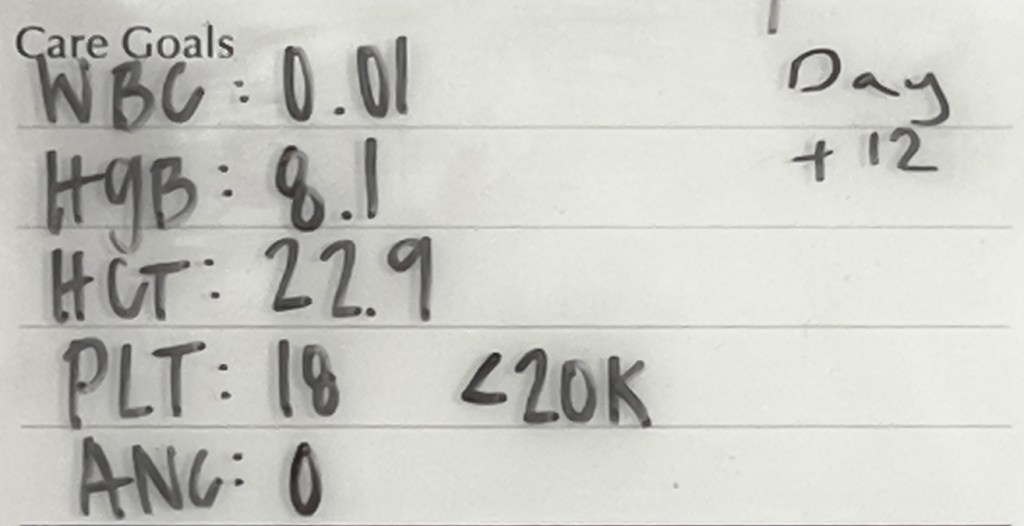 Care Goals
WBC: 0.01
Day
+ 12
HgB: 8.1
HCT: 22.9
PLT: 18 <20K
ANC: 0